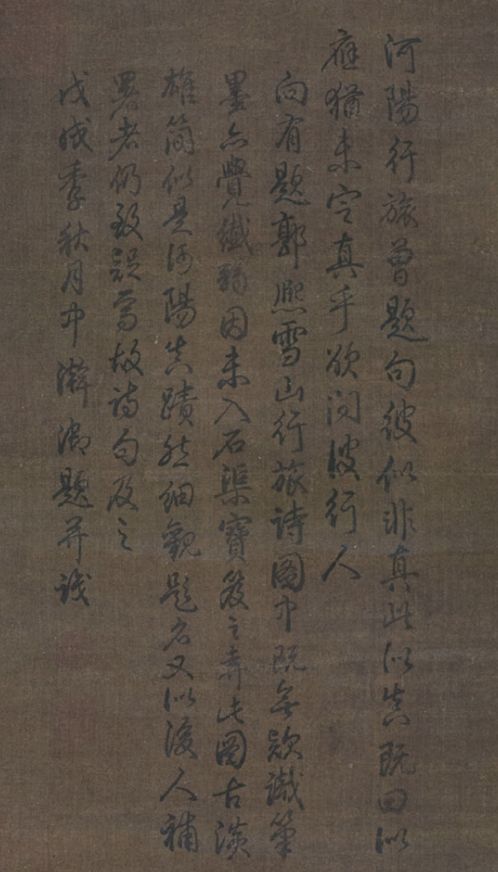 河陽行旅曾題句彼似非真此似真既曰似
應猶未定真乎欲問彼行人
向有題郭熙雪山行旅詩圖中既無款識筆
墨亦覺纖弱因未入石渠寶笈之弆此圖古淡
雄簡似是河陽真蹟然細觀題名又似後人補
署者仍致疑焉故詩句及之
戊戌季秋月中澣御題并識